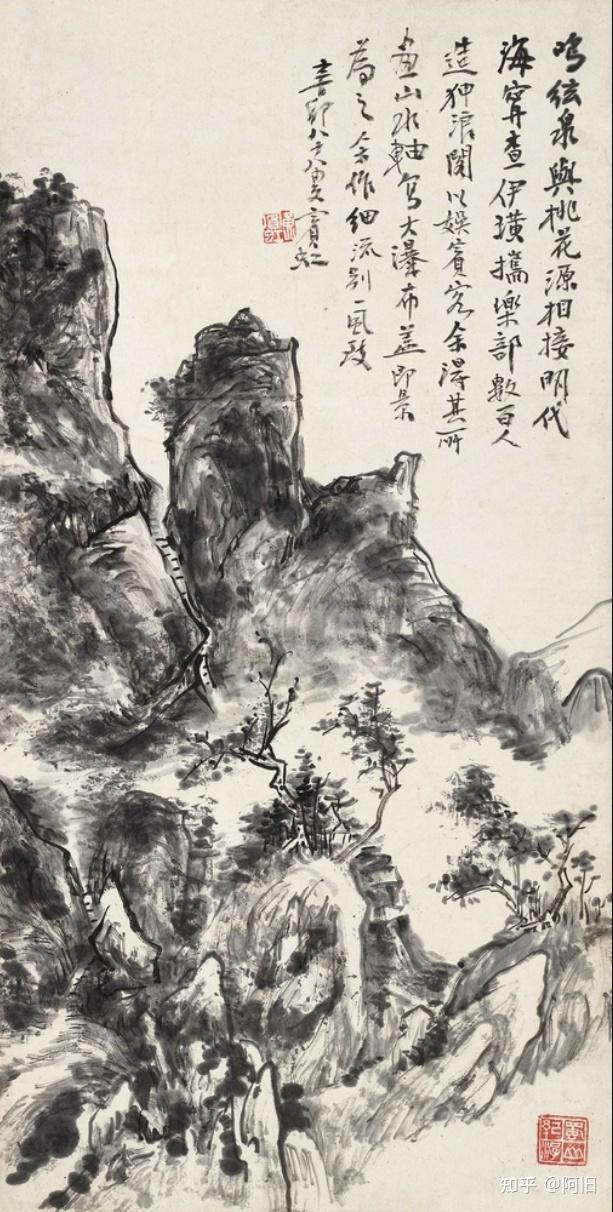 鳴絃泉與桃花源相接明代
海甯查伊璜攜樂部數百人
造狎浪閣以娛賓客余得其所
畫山水軸寫大瀑布蓋即景
為之余作細流別一風致
辛卯八十八叟賓虹
黃山紀游
知乎 @阿旧